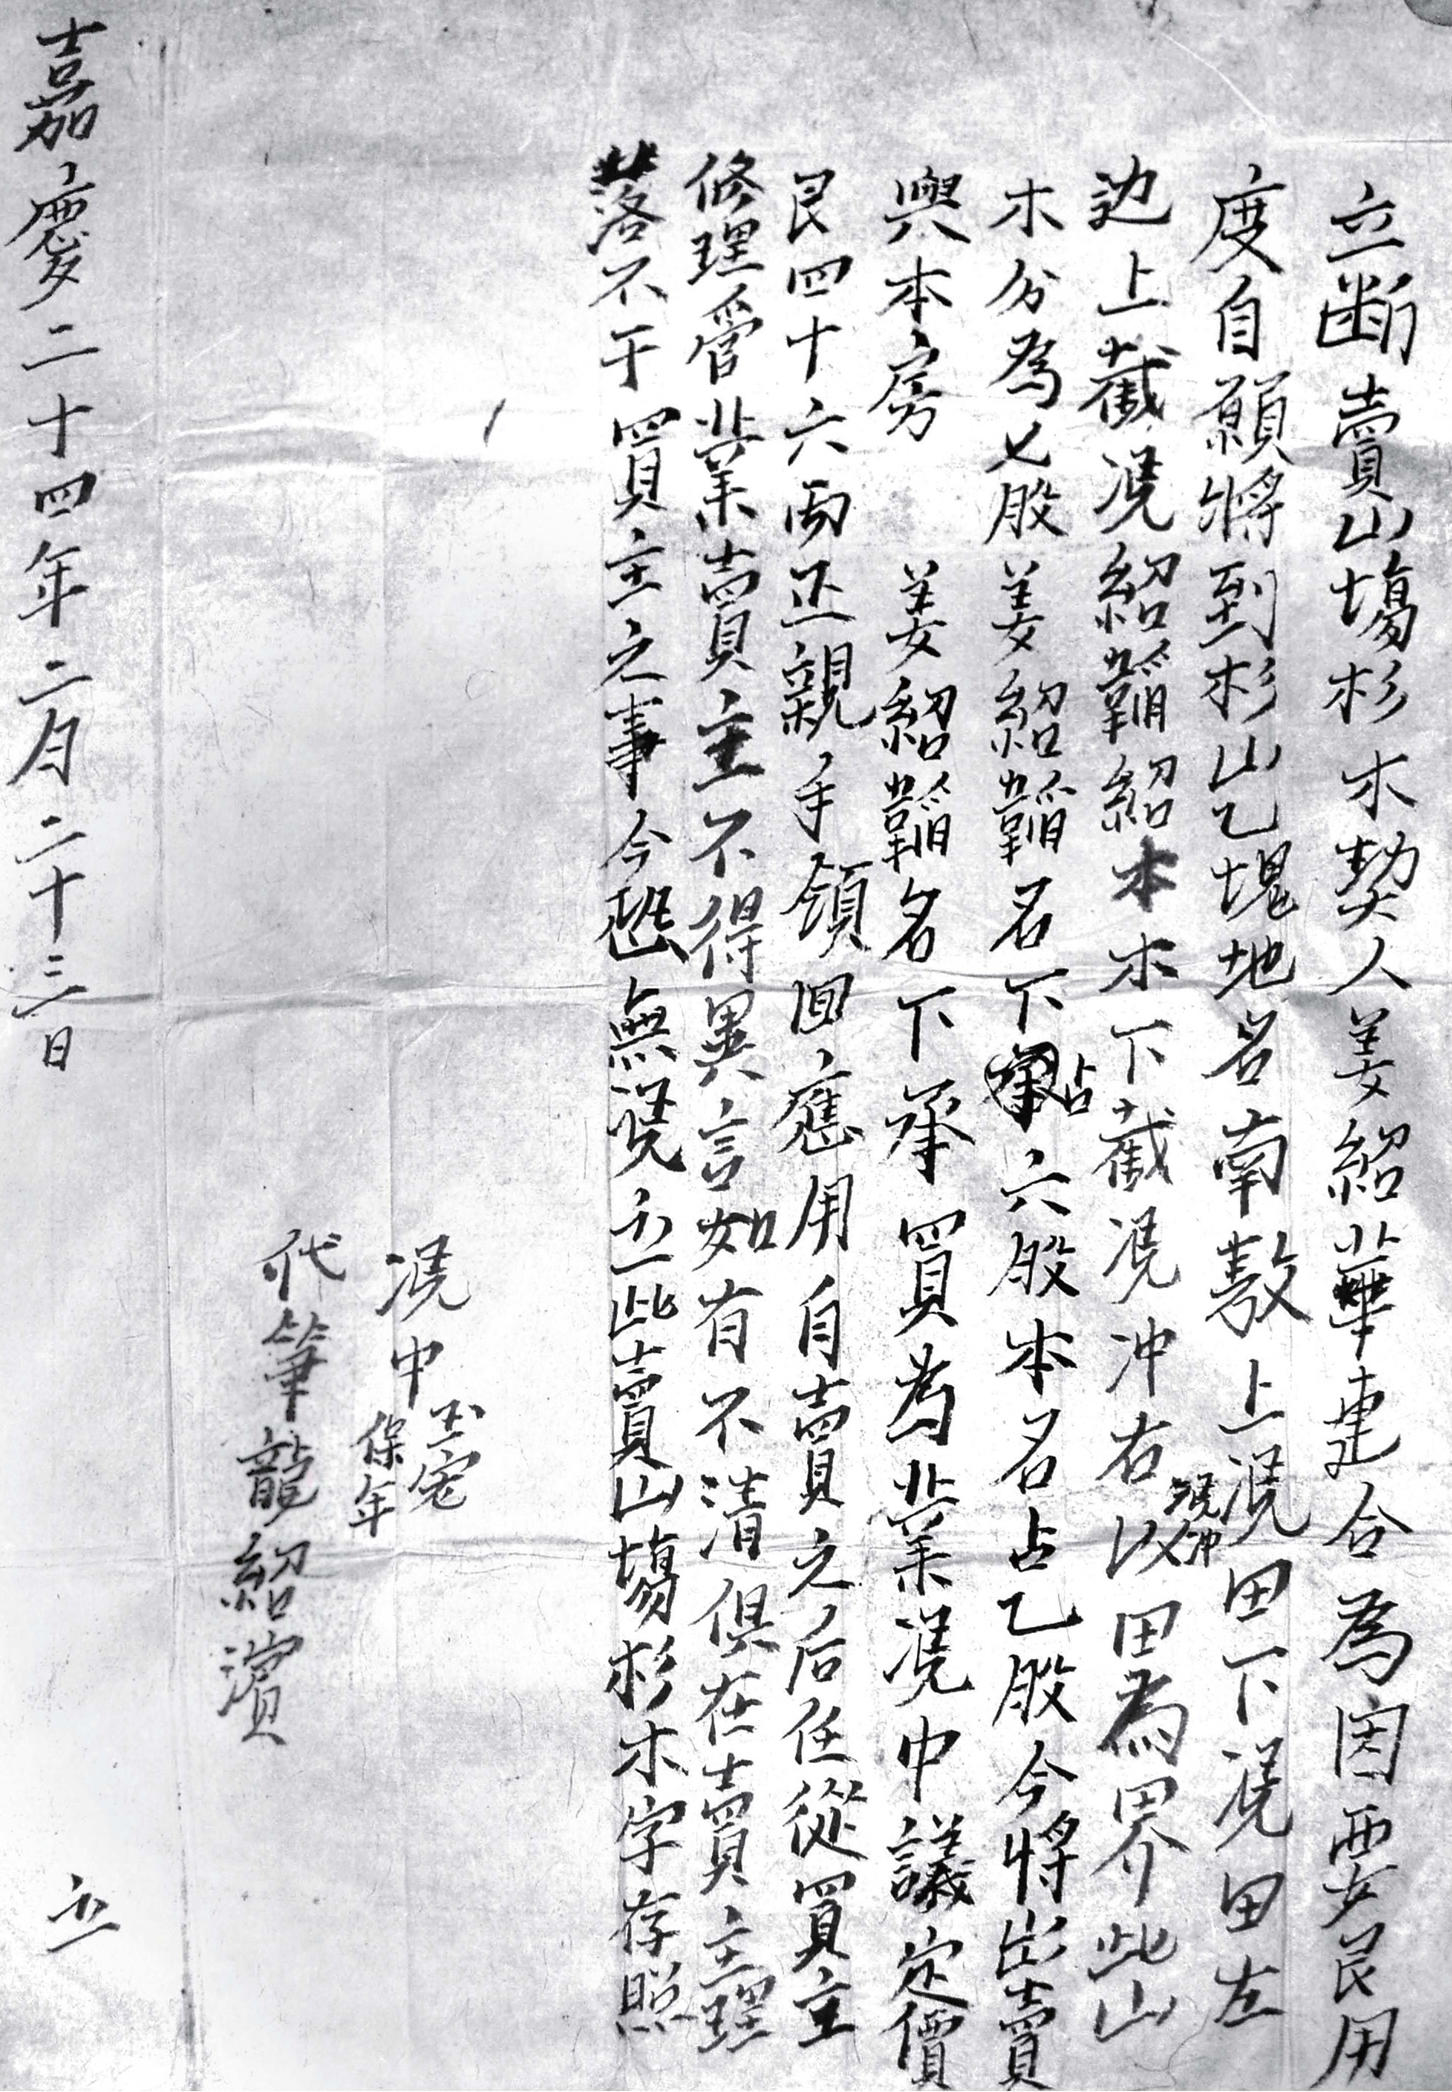 立断賣山塲杉木契人姜紹華連合為因要艮用
度自願將到杉山乙塊地名南敖上凴田下凴田左
边上截凴紹韜紹本木下截凴冲右凴冲以田為界此山
木分為七股姜紹韜名下占六股本名占乙股今將出賣
與本房 姜紹韜名下承買為業凴中議定價
艮四十六両正親手領回應用自賣之后任從買主
修理管業賣主不得異言如有不清俱在賣主理
落不干買主之事今恐無凴立此賣山塲杉木字存照
凴中 玉宏 保年
代筆龍紹濱
嘉慶二十四年二月二十三日 立